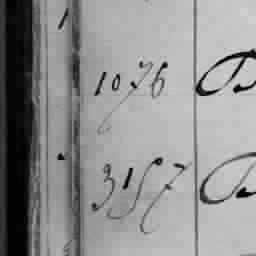 1076 B
3157 B